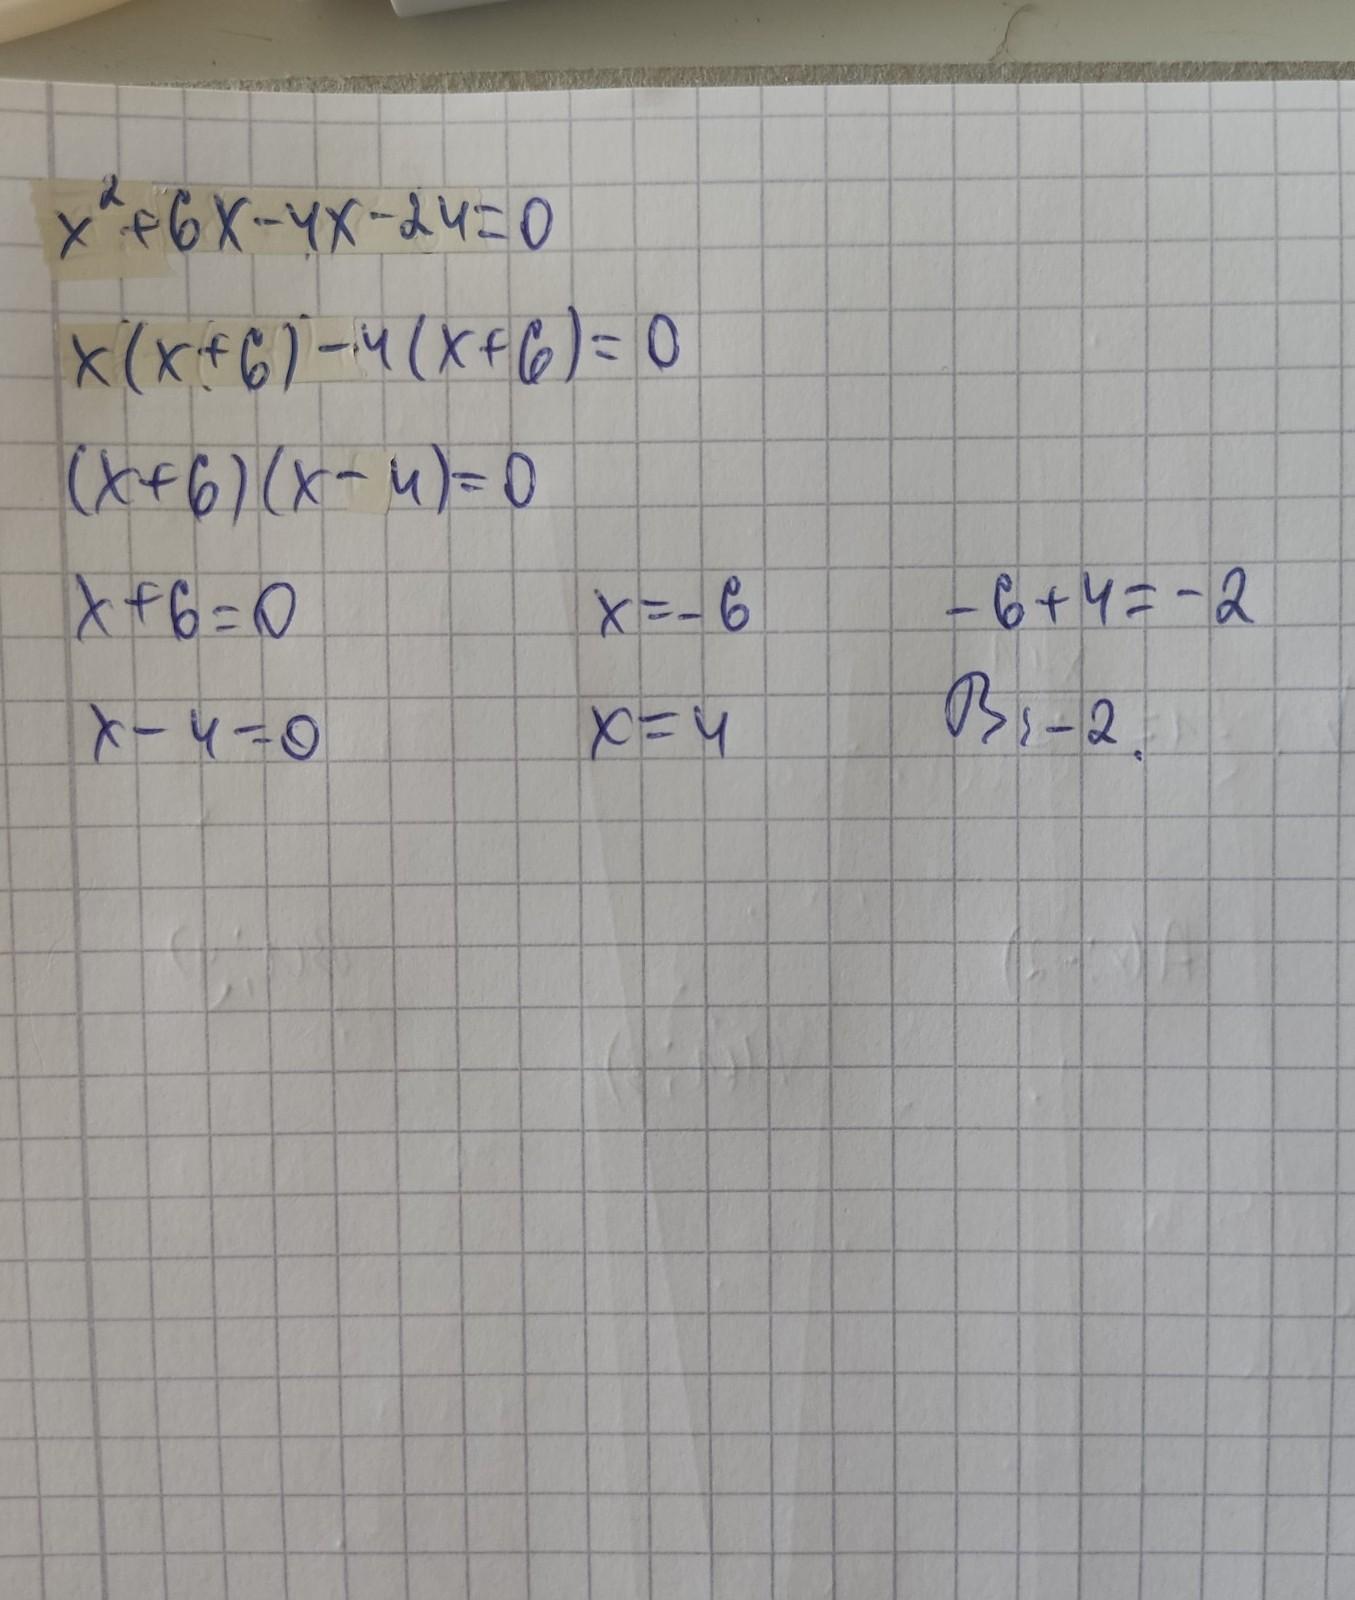 x²+6x-4x-24=0
x(x+6)-4(x+6)=0
(x+6)(x-4)=0
x+6=0 x=-6 -6+4=-2
x-4=0 x=4 В:-2.